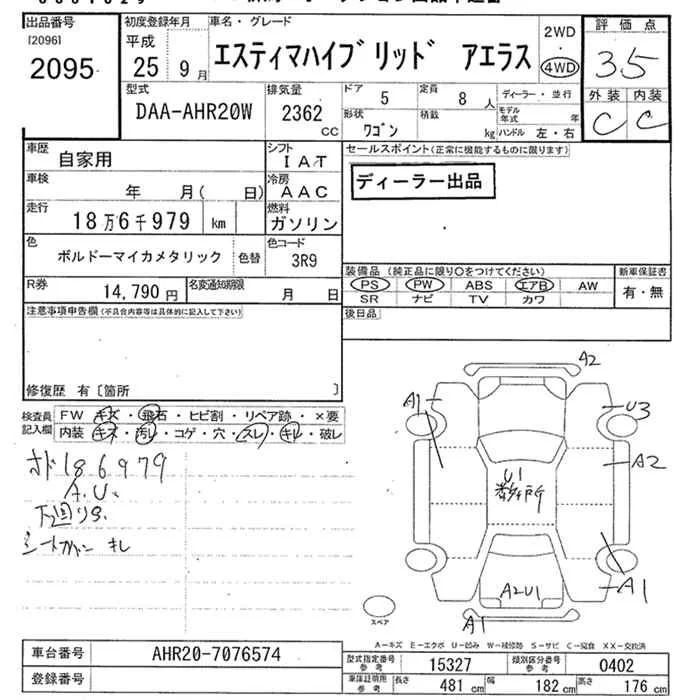 出品番号 初度登録年月 車名・グレード 2WD 評価点
[2096] 平成 エスティマハイブリッド アエラス 4WD 3.5
2095 25 9月
型式 排気量 ドア 5 定員 8人 ディーラー・並行 外装 内装
DAA-AHR20W 2362 cc 形状 ワゴン 積載 kg モデル年式 年 C C
ハンドル 左・右
車歴 自家用 シフト IAT セールスポイント(正常に機能するものに限ります)
車検 年 月( 日) 冷房 AAC ディーラー出品
走行 18万6千979 km 燃料 ガソリン
色 ボルドーマイカメタリック 色替 色コード 3R9
装備品(純正品に限り○をつけてください) 新車保証書
R券 14,790円 名変通知期限 月 日 PS PW ABS エアB AW 有・無
SR ナビ TV カワ
注意事項申告欄(不具合内容等は具体的に記入して下さい) 後日品
修復歴 有〔箇所 〕
検査員記入欄 FW キズ・飛石・ヒビ割・リペア跡・×要
内装 キズ・汚レ・コゲ・穴・スレ・キレ・破レ
186979
A.U.
下廻りS.
キレ
A2
A1
U3
A2
U1
A1
A2U1
A1
スペア
A−キズ E−エクボ U−凹み W−補修跡 S−サビ C−腐食 XX−交換済
車台番号 AHR20-7076574
型式指定番号参考 15327 類別区分番号参考 0402
登録番号
車庫証明用参考 長さ 481 cm 幅 182 cm 高さ 176 cm